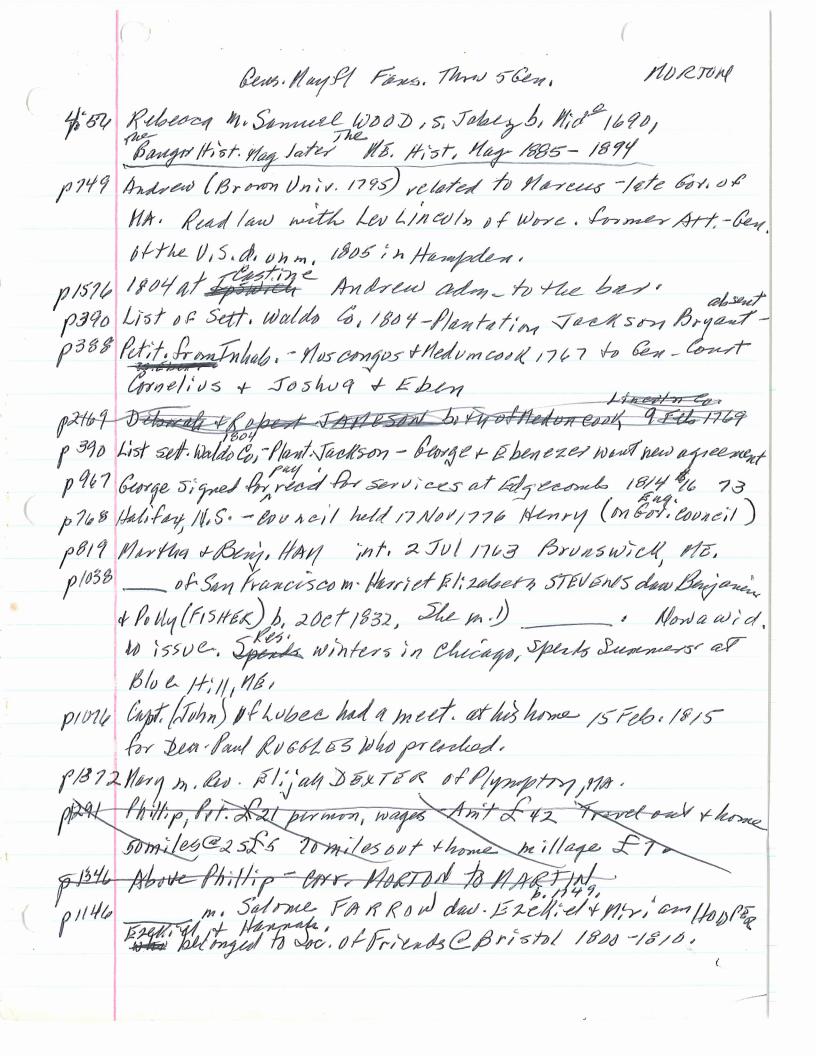 Gens. Mayfl Fams. Thru 5 Gen. MORTON
4:56 Rebecca m. Samuel WOOD, s. Jabez b. Mid^e 1690,
The Bangor Hist. Mag later The ME. Hist. Mag 1885-1894
p749 Andrew (Brown Univ. 1795) related to Marcus - late Gov. of
MA. Read law with Lev Lincoln of Worc. former Att.-Gen.
of the U.S. d. unm. 1805 in Hampden.
p1576 1804 at Ipswich Castine Andrew adm. to the bar.
p390 List of Sett. Waldo Co. 1804 - Plantation Jackson Bryant - absent
p388 Petit. from Inhab. - Muscongus & Meduncook 1767 to Gen - Court
Cornelius & Joshua & Eben
p2469 Deborah & Robert JAMESON both of Meduncook, Lincoln Co. 9 Feb 1769
p390 List sett. Waldo Co, 1804 - Plant. Jackson - George & Ebenezer want new agreement
p967 George signed for pay rec'd for services at Edgecomb 1814 $16 73
p768 Halifax, N.S. - council held 17 Nov 1776 Henry (on Gov. council) Eng.
p819 Martha & Benj. HAM int. 2 Jul 1763 Brunswick, ME.
p1038 ____ of San Francisco m. Harriet Elizabeth STEVENS dau Benjamin
& Polly (FISHER) b. 2 Oct 1832, She m. 1) ____. Now a wid.
no issue. Spends Res. winters in Chicago, spends summers at
Blue Hill, ME.
p1076 Capt. (John) of Lubec had a meet. at his home 15 Feb. 1815
for Dea. Paul RUGGLES who preached.
p1372 Mary m. Rev. Elijah DEXTER of Plympton, MA.
p1291 Phillip, Pvt. £21 per mon, wages - Am't £42 Travel out & home
50 miles @ 2s £5 70 miles out & home millage £7
p1346 Above Phillip - corr. MORTON TO MARTIN
p1146 ____ m. Salome FARROW b. 1749. dau. Ezekiel & Miriam HOOPER
Ezekiel & Hannah.
who belonged to Soc. of Friends @ Bristol 1800-1810.